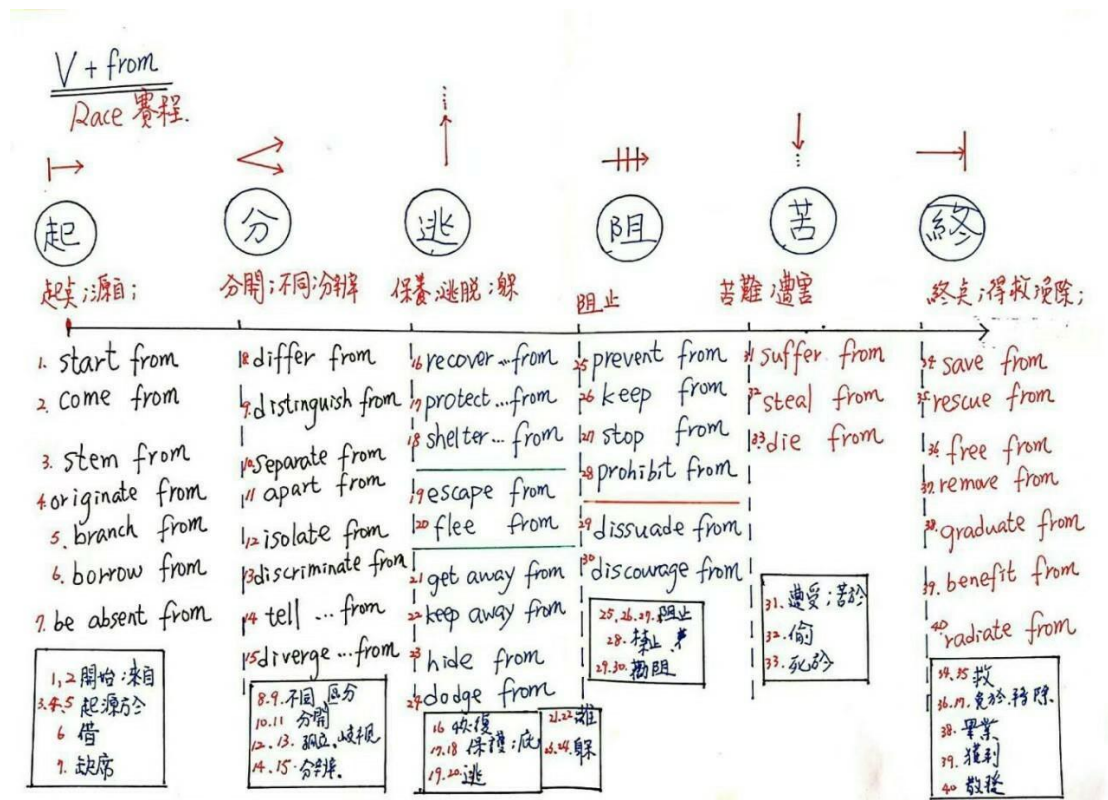 V + from
Race 賽程.
起
分
逃
阻
苦
終
起点;源自;
分開;不同;分辨
保養;逃脱;躲
阻止
苦難;遭害
終点;得救;消除;
1. start from
2. come from
3. stem from
4. originate from
5. branch from
6. borrow from
7. be absent from
1,2 開始;來自
3.4.5 起源於
6 借
7. 缺席
8 differ from
9. distinguish from
10. separate from
11 apart from
12 isolate from
13 discriminate from
14 tell ... from
15 diverge ... from
8.9. 不同 區分
10.11 分開
12. 13. 孤立、歧視
14. 15. 分辨.
16 recover ... from
17 protect ... from
18 shelter ... from
19 escape from
20 flee from
21 get away from
22 keep away from
23 hide from
24 dodge from
16 恢復
17.18 保護;庇
19.20. 逃
21.22 離
23.24. 躲
25 prevent from
26 keep from
27 stop from
28 prohibit from
29 dissuade from
30 discourage from
25.26.27. 阻止
28. 禁止
29.30. 勸阻
31 suffer from
32 steal from
33. die from
31. 遭受;苦於
32. 偷
33. 死於
34 save from
35 rescue from
36 free from
37 remove from
38. graduate from
39. benefit from
40 radiate from
34.35 救
36.37. 免於、移除
38. 畢業
39. 獲利
40